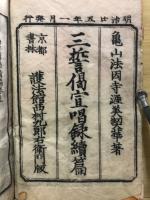 明治廿五年一月發行
龜山法因寺 著
三誓偈宣唱録續篇
京都
書林
護法館西村九郎右衛門版